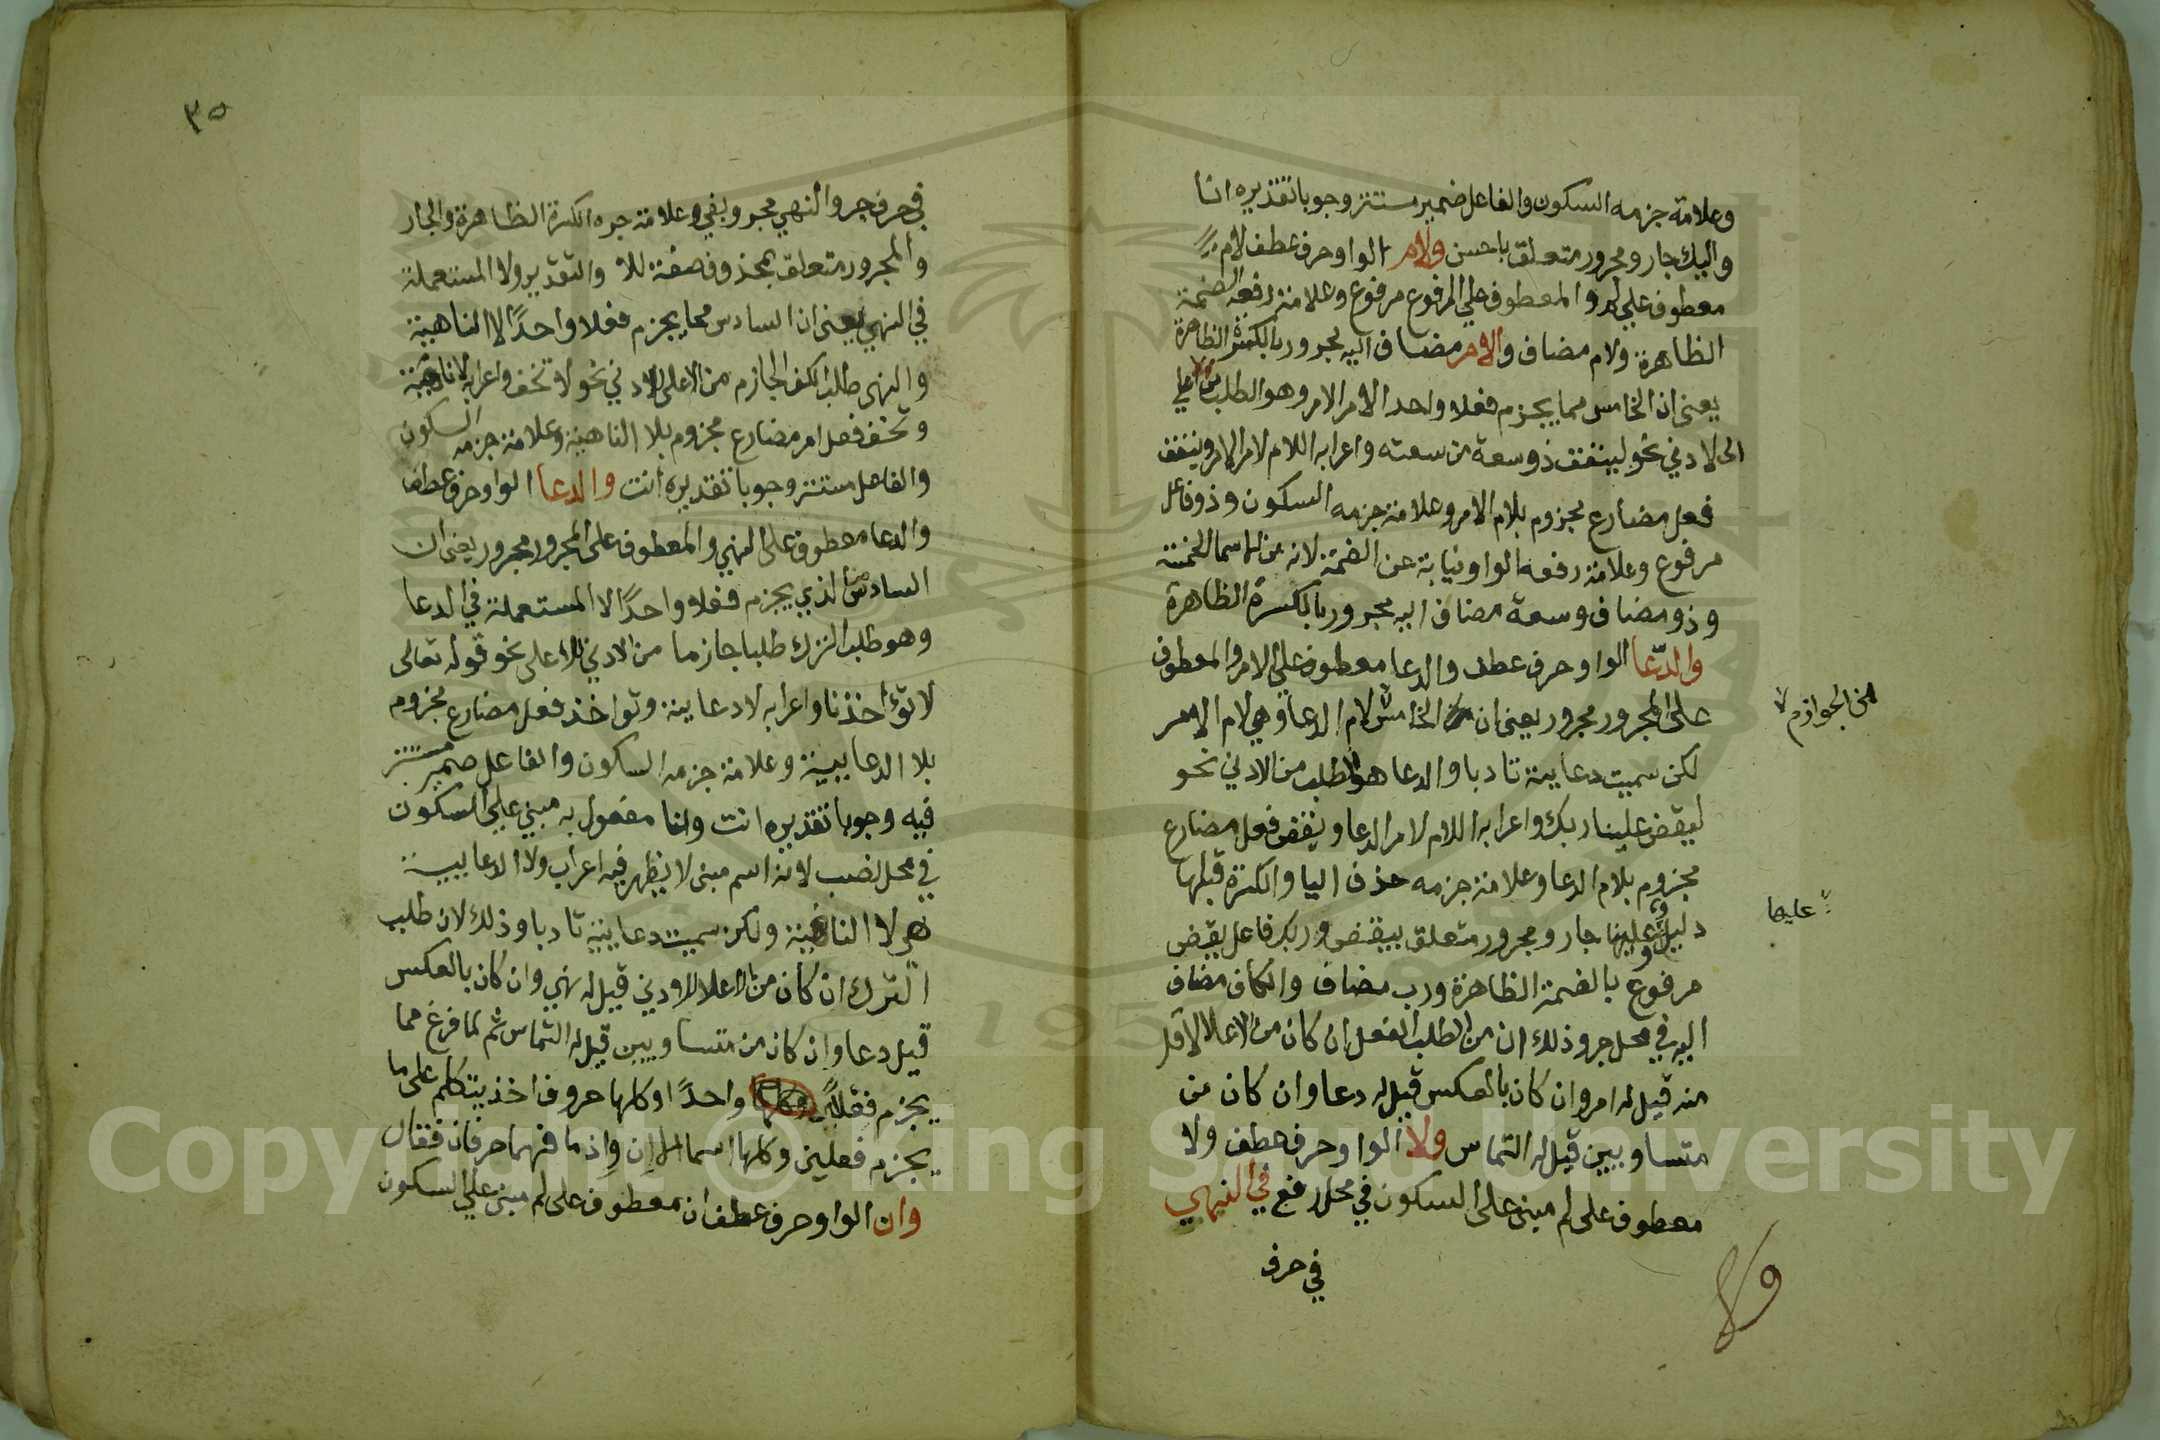 وعلامة جزمه السكون والفاعل ضمير مستتر وجوبا تقديره انا
واليك جار ومجرور متعلق باحسن ولام الواو حرف عطف لام
معطوف على لم والمعطوف على المرفوع مرفوع وعلامة رفعه الضمة
الظاهرة ولام مضاف والامر مضاف اليه مجرور بالكسرة الظاهرة
يعني ان الخامس مما يجزم فعلا واحد الامر الامر وهو الطلب من اعلي
الى الادني نحو لينفق ذو سعة من سعته واعرابه اللام لام الامر وينفق
فعل مضارع مجزوم بلام الامر وعلامة جزمه السكون وذو فاعل
مرفوع وعلامة رفعه الواو نيابة عن الضمة لانه من الاسما الخمسة
وذو مضاف وسعة مضاف اليه مجرور بالكسرة الظاهرة
والدّعا الواو حرف عطف والدعا معطوف على الامر والمعطوف
على المجرور مجرور يعني ان الخامس لام الدعا وهي لام الامر
من الجوازم
لكن سميت دعايية تادبا والدعا هو الطلب من الادني نحو
ليقض علينا ربك واعرابه اللام لام الدعا ويقض فعل مضارع
مجزوم بلام الدعا وعلامة جزمه حذف اليا والكسرة قبلها
دليل وعلينا جار ومجرور متعلق بيقض وربك فاعل يقض
عليها
مرفوع بالضمة الظاهرة ورب مضاف والكاف مضاف
اليه في محل جر وذلك ان من الطلب الفعل ان كان من الاعلا لاقل
منه قيل له امر وان كان بالعكس قيل له دعا وان كان من
متساويين قيل له التماس ولا الواو حرف عطف ولا
معطوف على لم مبني على السكون في محل رفع في النهي
في حرف
٣٥
في حرف جر والنهي مجرور بفي وعلامة جره الكسرة الظاهرة والجار
والمجرور متعلق بمحذوف صفة للا والتقدير ولا المستعملة
في النهي يعني ان السادس مما يجزم فعلا واحدًا لا الناهية
والنهي طلب الكف الجازم من الاعلى للادني نحو لا تخف واعرابه لا ناهية
وتخف فعل امر مضارع مجزوم بلا الناهية وعلامة جزمه السكون
والفاعل مستتر وجوبا تقديره انت والدعا الواو حرف عطف
والدعا معطوف على النهي والمعطوف على المجرور مجرور يعني ان
السادس من الذي يجزم فعلا واحدًا لا المستعملة في الدعا
وهو طلب الترك طلبا جازما من الادني للاعلى نحو قوله تعالى
لا تؤاخذنا واعرابه لا دعايية وتواخذ فعل مضارع مجزوم
بلا الدعاييية وعلامة جزمه السكون والفاعل ضمير مستتر
فيه وجوبا تقديره انت ونا مفعول به مبني على السكون
في محل نصب لانه اسم مبني لا يظهر فيه اعراب ولا الدعاييية
هي لا الناهية ولكن سميت دعايية تادبا وذلك لان طلب
الترك ان كان من الاعلا للادني قيل له نهي وان كان بالعكس
قيل دعا وان كان من متساويين قيل له التماس ثم لما فرغ مما
يجزم فعلاً واحدًا وكلها حروف اخذ يتكلم على ما
يجزم فعلين وكلها اسما الا إن وإذ ما فهما حرفان فقال
وان الواو حرف عطف ان معطوف على لم مبني على السكون
Copyright © King Saud University